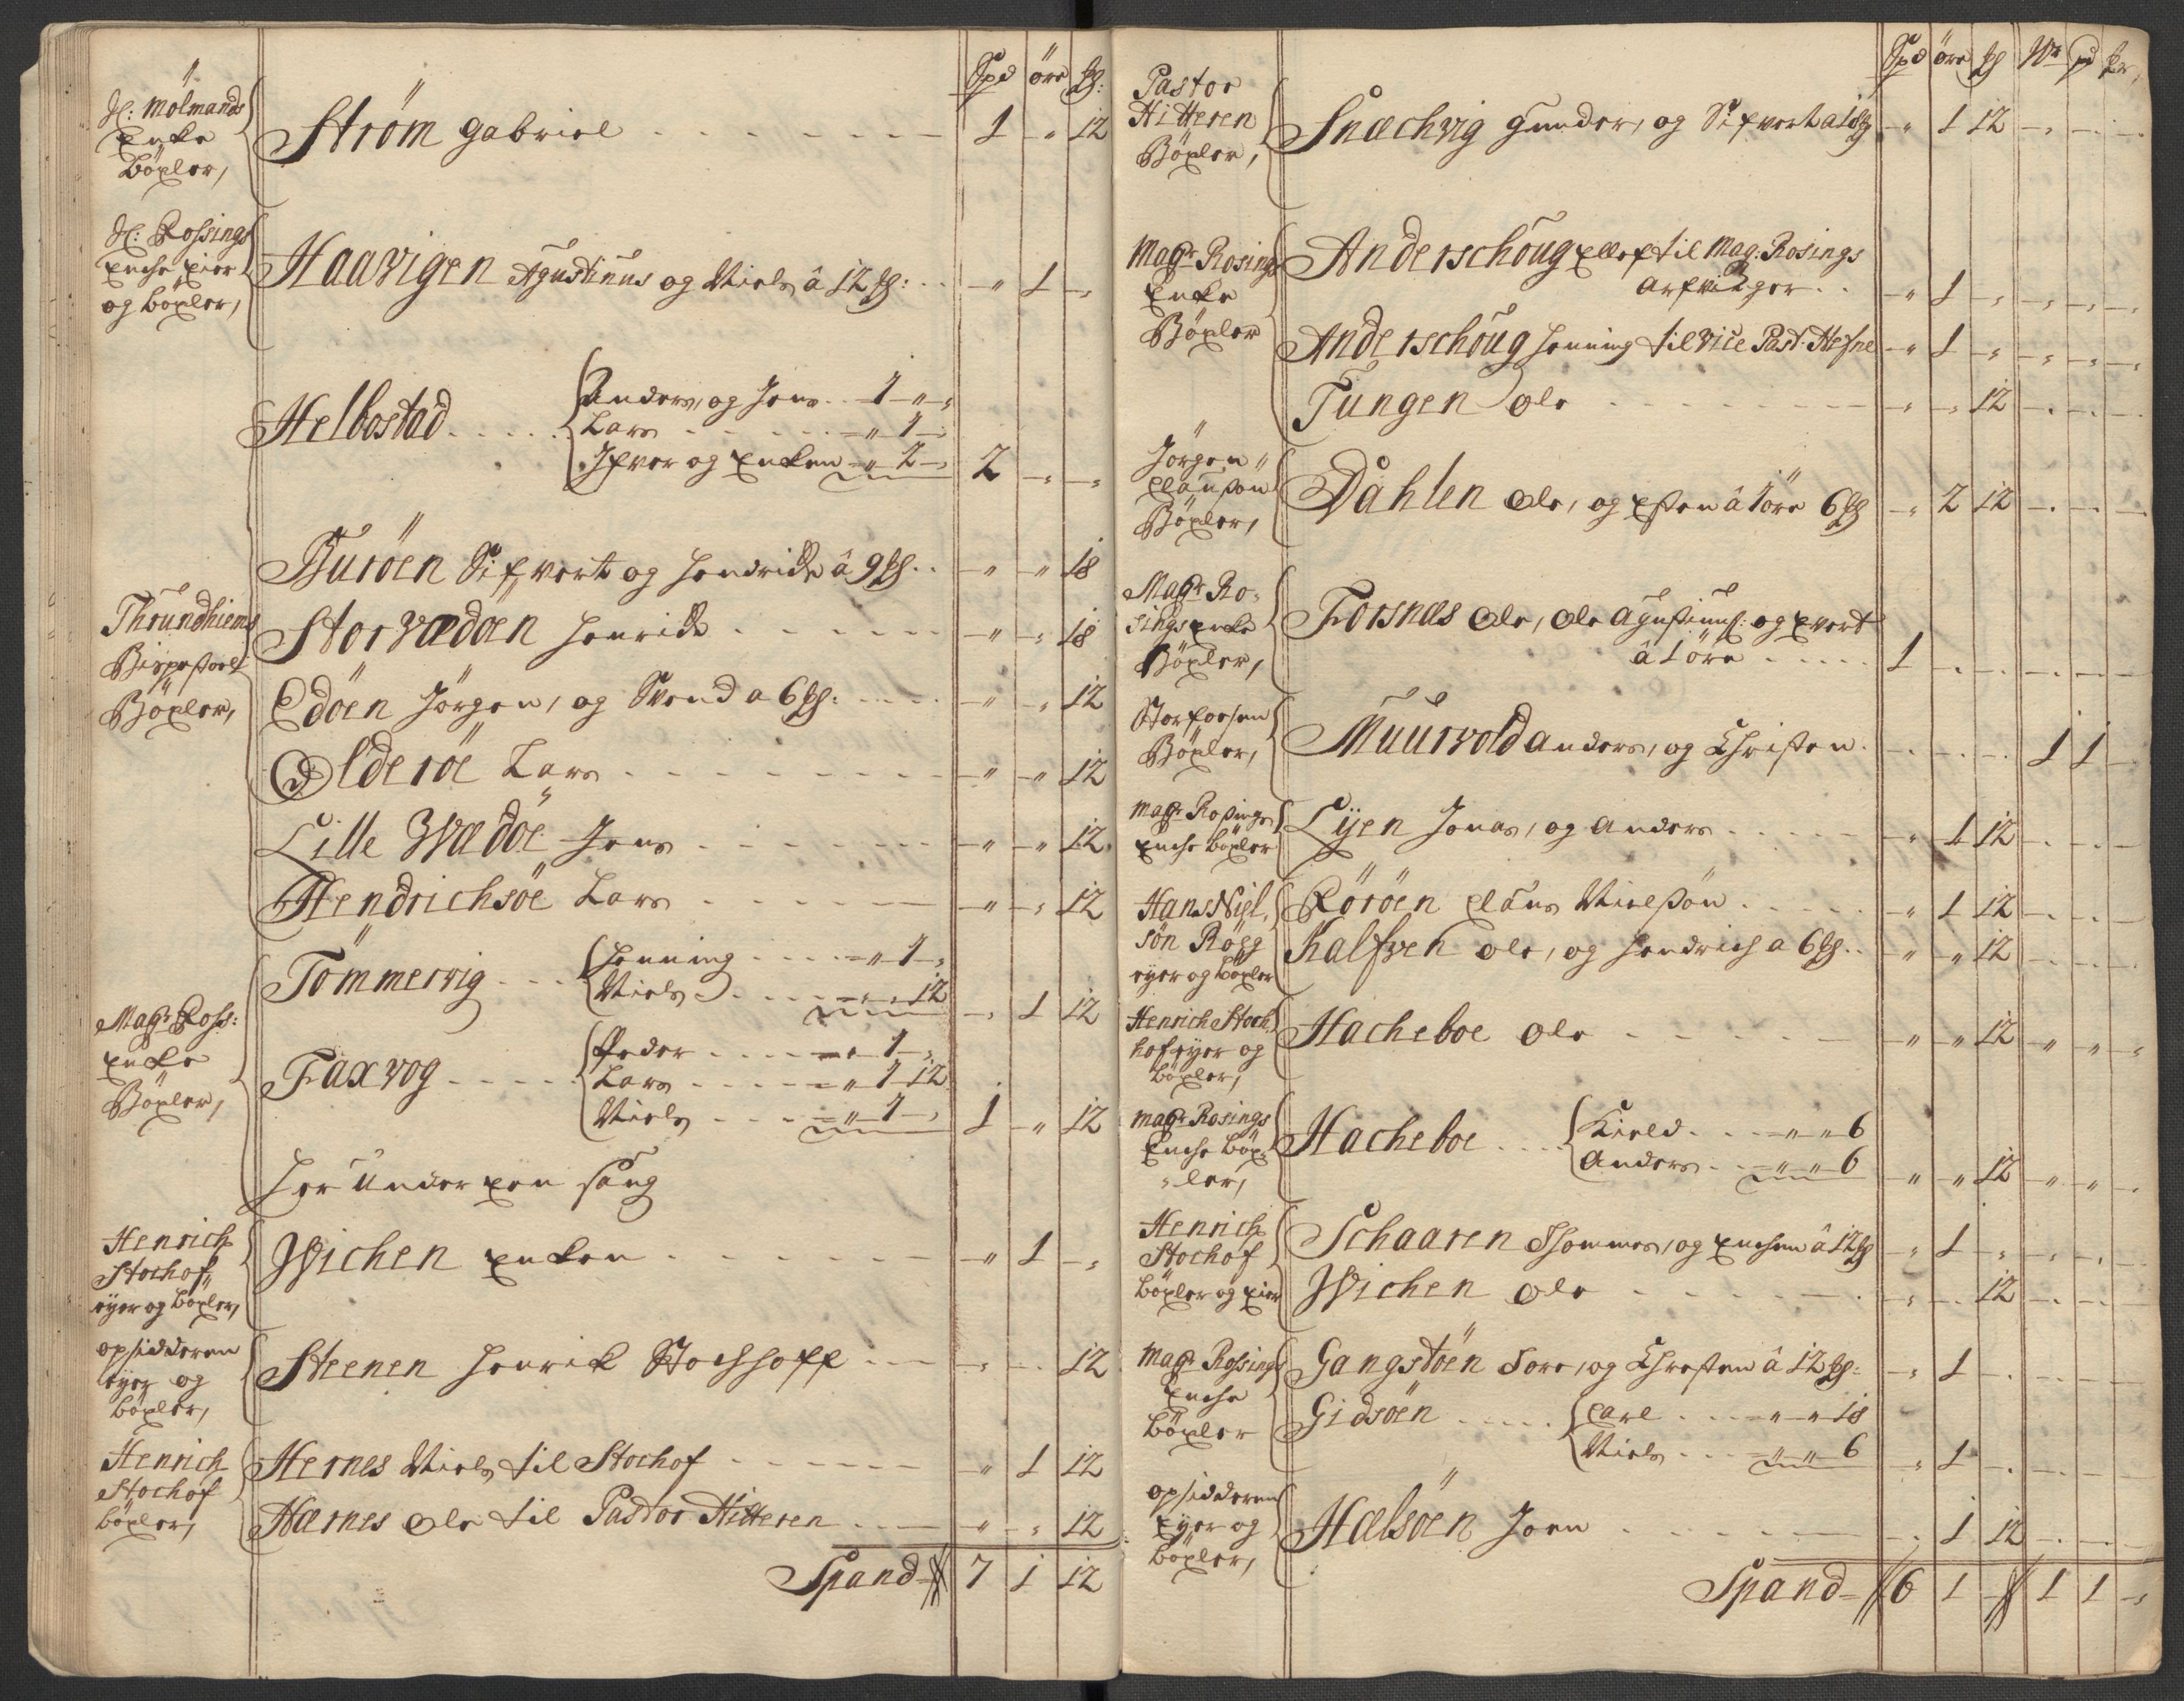 Spd öre ß:
Sl: Mölmands
Enke
Böxler,
Ström Gabriel - - - 1 - " 12
Sl: Rossings
Enche Eier
og böxler,
Haavigen Agustinus og Niels â 12 ß: . . - " 1 - "
Helbostad. . . . .
Anders, og Jens . . 1 - " - "
Lars - - - - " 1 - "
Ifver og Enken - " 2 - "
2 - " - "
Thrundhiems
Bispestoels
Böxler,
Buröen Sifvert og Hendrich â 9 ß . . - " - " 18
Storvædöen Henrich - - - - " - " 18
Edöen Jörgen, og Svend a 6 ß: . . . - " - " 12
Olderöe Lars - - - - " - " 12
Lille Wædöe Jens - - - - " - " 12
Hendrichsöe Lars - - - - " - " 12
Magr Ross:
Enke
Böxler,
Tömmervig - - -
Henning . . . - " 1 - "
Niels . . . - " - " 12
- " 1 12
Faxvog - - - -
Peder . . . - " 1 - "
Lars - - - " 1 12
Niels - - - " 1 - "
1 - " 12
Her under een saug
Henrich
Stochof
eyer og böxler,
Wichen Enken - - - - " 1 - "
opsidderen
eyer og
böxler,
Steenen Henrich Stochhoff - - - " - " 12
Henrich
Stochof
böxler,
Hernes Niels til Stochof - - - " 1 12
Hærnes Ole til Pastor Hitteren . . - " - " 12
Spand 7 1 12
Spd öre ß Wr pd
Pastor
Hitteren
Böxler,
Snæchvig Gunder, og Sifvert a 18 ß - " 1 12 - " - " - "
Magr Rosings
Enke
Böxler
Anderschoug Ellef til Mag: Rosings
Arfvinger . . - " 1 - " - " - " - "
Anderschoug Henning til Vice Past. Hefne - " 1 - " - " - " - "
Tungen Ole - - - - " - " 12 - " - " - "
Jörgen
Claussön
Böxler,
Dahlen Ole, og Esten â 1 öre 6 ß - " 2 12 - " - " - "
Magr Ro-
sings Enke
Böxler,
Forsnæs Ole, Ole Agustinus: og Evert
â 1 öre . . . . 1 - " - " - " - " - "
Storfoosen
Böxler,
Muurvold Anders, og Christen . - " - " - " 1 1 - "
Magr Rossings
Enche böxler
Lyen Jonas, og Anders . . . - " 1 12 - " - " - "
Hans Nigl.
sön Rögg
eyer og böxler
Röröen Claus Nielssön . . . - " 1 12 - " - " - "
Kalfven Ole, og Hendrich a 6 ß . . - " - " 12 - " - " - "
Henrich Stoch
hof eyer og
böxler,
Hacheboe Ole - - - " - " 12 - " - " - "
Magr Rosings
Enche böx-
"ler,
Hacheboe . . .
Kield . . - " - " 6
Anders . . - " - " 6
- " - " 12 - " - " - "
Henrich
Stochof
böxler og Eier
Schaaren Thommes, og Enchen â 12 ß - " 1 - " - " - " - "
Wichen Ole - - - - " - " 12 - " - " - "
Magr Rossings
Enche
böxler
Gangstöen Tore, og Chresten â 12 ß: - " 1 - " - " - " - "
Gidsöen . . . .
Carl . . . - " - " 18
Niels . . . - " - " 6
- " 1 - " - " - " - "
opsidderen
Eyer og
böxler,
Hælsöen Joen - - - - " 1 12 - " - " - "
Spand 6 1 - " 1 1 - "